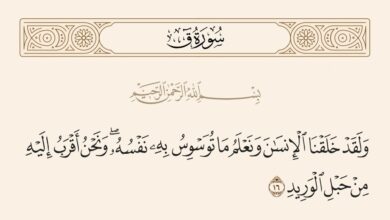 سُورَةُ قٓ
بِسْمِ ٱللَّهِ ٱلرَّحْمَٰنِ ٱلرَّحِيمِ
وَلَقَدْ خَلَقْنَا ٱلْإِنسَٰنَ وَنَعْلَمُ مَا تُوَسْوِسُ بِهِۦ نَفْسُهُۥ ۖ وَنَحْنُ أَقْرَبُ إِلَيْهِ
مِنْ حَبْلِ ٱلْوَرِيدِ ١٦